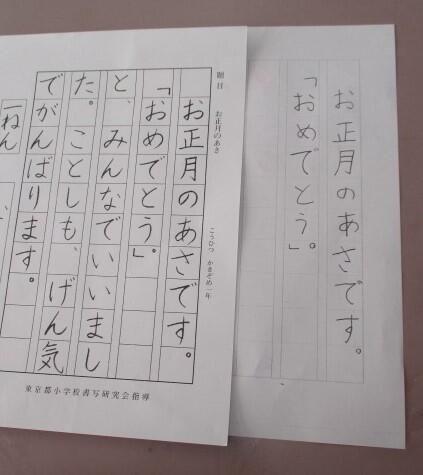 題目
お正月のあさ
こうひつ かきぞめ一年
お正月のあさです。
「おめでとう」。
と、みんなでいいまし
た。ことしも、げん気
でがんばります。
一ねん
東京都小学校書写研究会指導
お正月のあさです。
「おめでとう」。